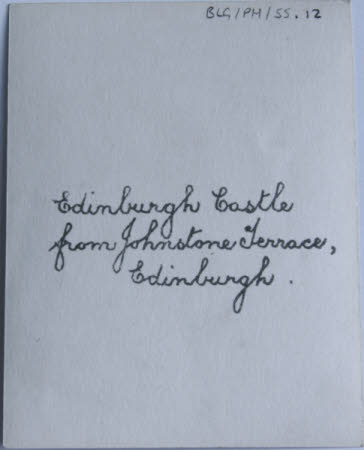 BLG/PH/SS.12
Edinburgh Castle
from Johnstone Terrace,
Edinburgh.